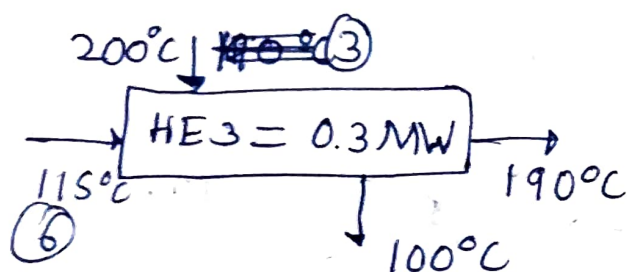 200°C ③
HE3 = 0.3 MW
115°C 190°C
⑥
100°C